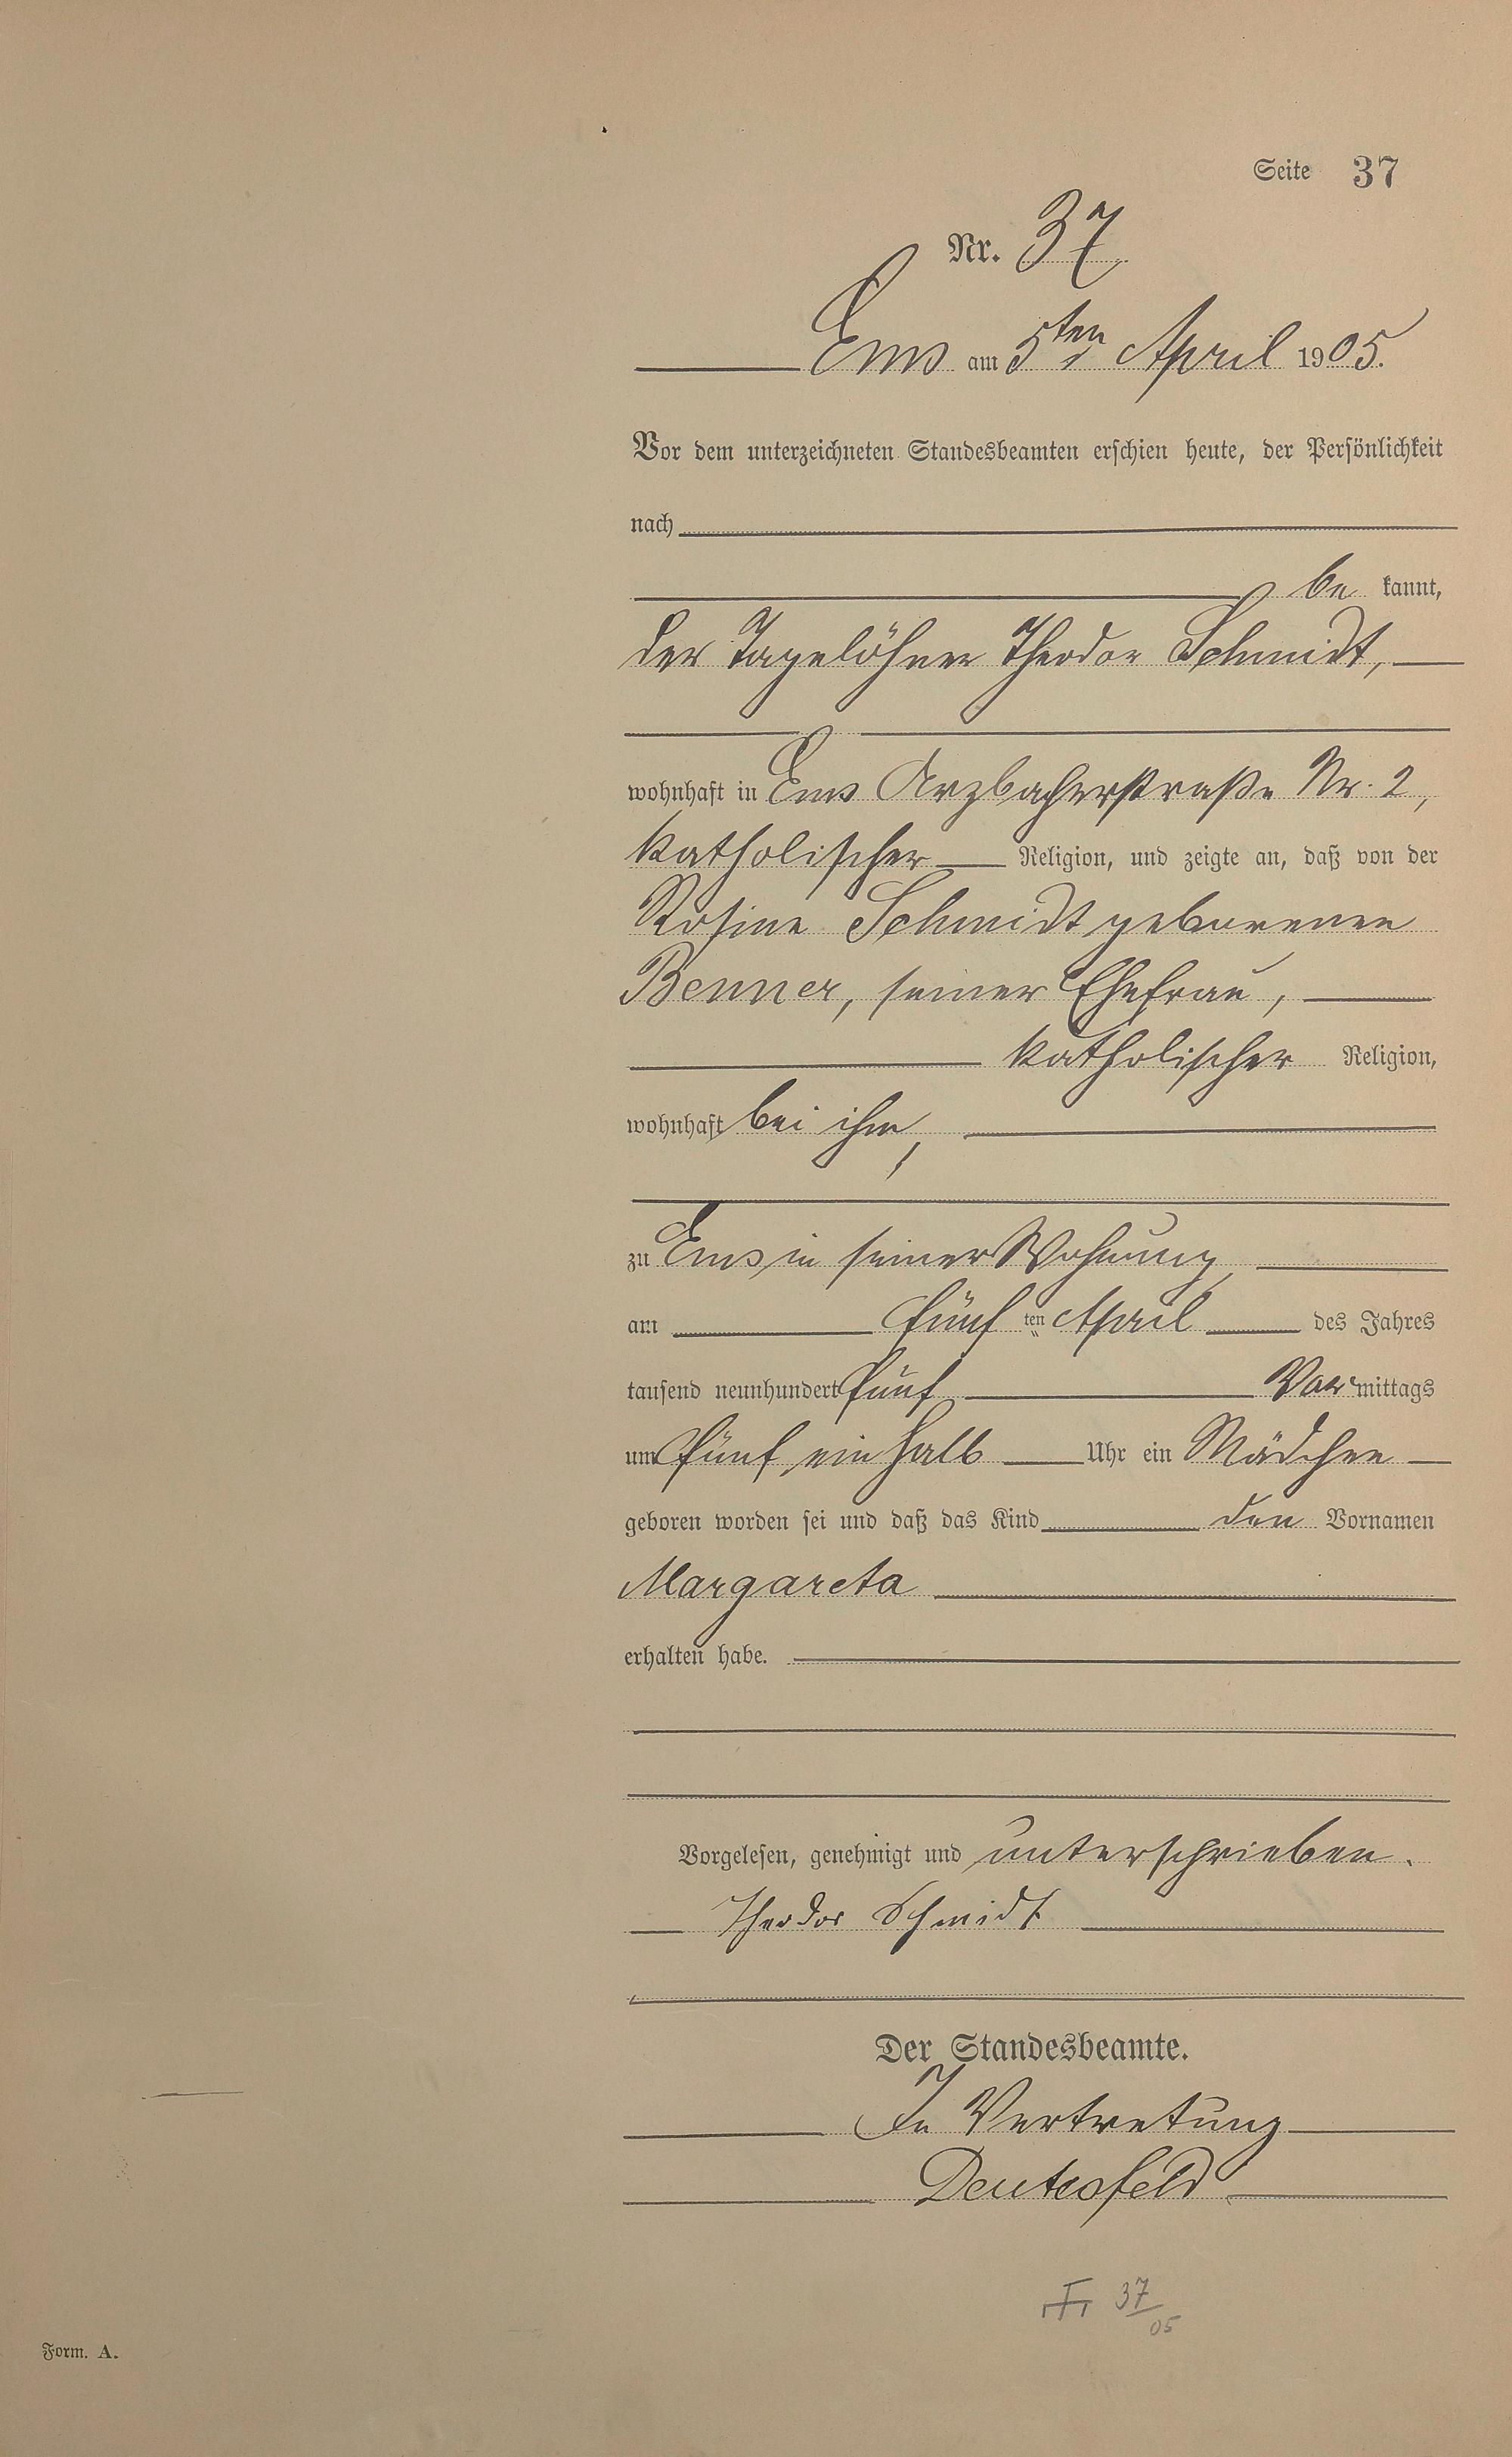 Seite 37
Nr. 37
Ems am 5ten April 1905.
Vor dem unterzeichneten Standesbeamten erschien heute, der Persönlichkeit
nach
be kannt,
der Tagelöhner Theodor Schmidt,
wohnhaft in Ems Arzbacherstraße Nr. 2,
katholischer Religion, und zeigte an, daß von der
Rosine Schmidt geborenen
Benner, seiner Ehefrau,
katholischer Religion,
wohnhaft bei ihm,
zu Ems in seiner Wohnung
am fünf ten April des Jahres
tausend neunhundert fünf Vor mittags
um fünf ein halb Uhr ein Mädchen
geboren worden sei und daß das Kind den Vornamen
Margareta
erhalten habe.
Vorgelesen, genehmigt und unterschrieben.
Theodor Schmidt
Der Standesbeamte.
In Vertretung
37
05
Form. A.